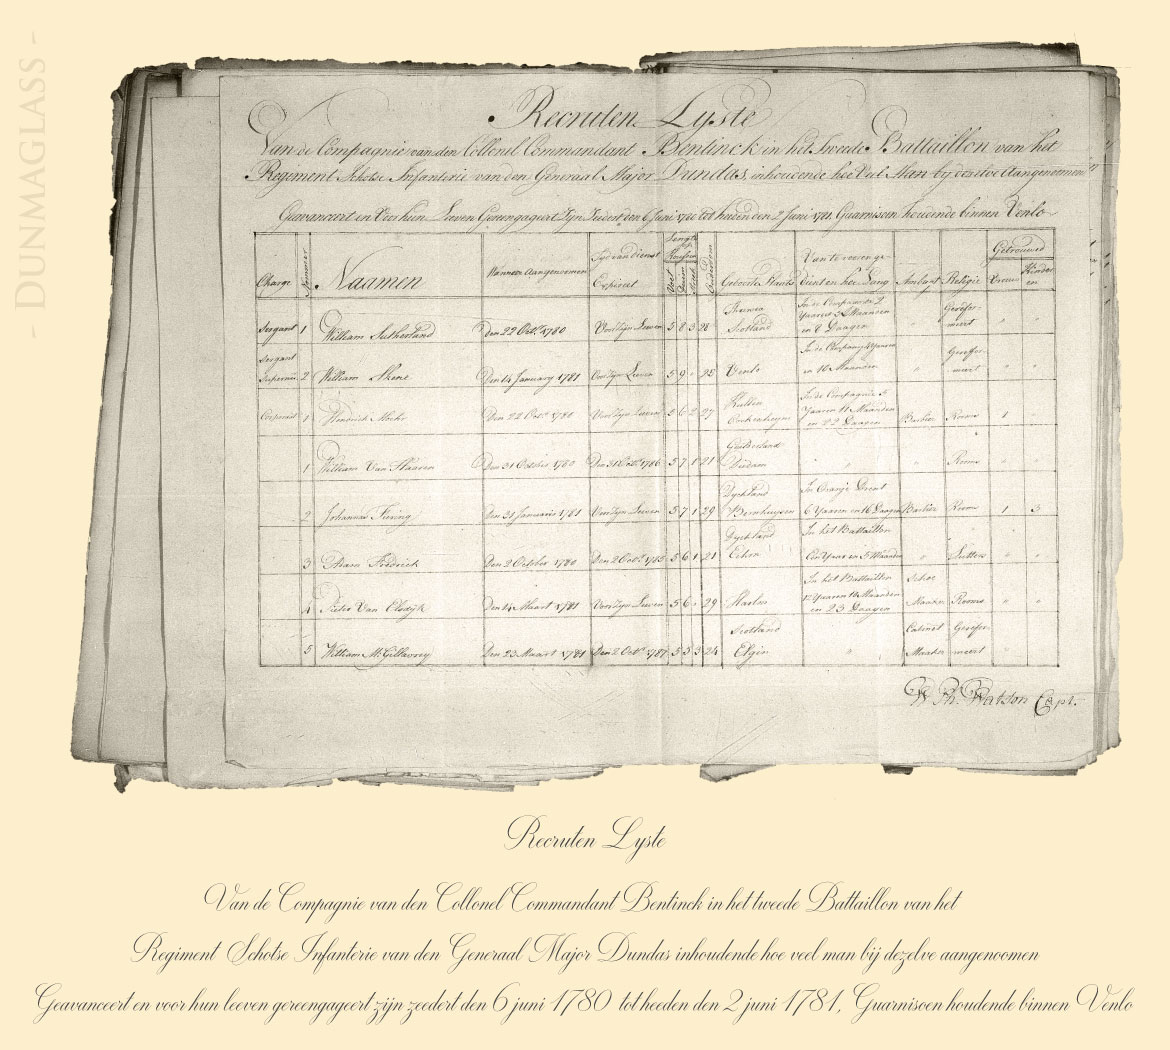 - DUNMAGLASS -
Recruten Lyste
Van de Compagnie van den Collonel Commandant Bentinck in het Tweede Battaillon van het
Regiment Schotse Infanterie van den Generaal Major Dundas, inhoudende hoe Veel Man bij dezelve Aangenomen
Geavanceert en Voor hun Leeven Gereengageert Zyn Zedert den 6 Juni 1780 tot heeden den 2 Juni 1781. Guarnisoen houdende binnen Venlo
Charge Nummer Naamen Wanneer Aangenoomen Tyd van dienst Expireert Voet Duim Geboorte Plaats Van te vooren gedient en hoe Lang Ambagt Religie Getrouwd Vrouw Kinderen
Sergant 1 William Sutherland Den 22 Octr. 1780 Voor Zyn Leeven 5 8 3 28 Scotland In de Compagnie 2 Yaaren Maanden en 8 Daagen " Gereformeert " "
Sergant 2 William Skene Den 14 January 1781 Voor Zyn Leeven 5 9 " 28 Venlo In de Company 4 Yaaren en 10 Maanden " Gereformeert " "
Corporaal 1 Hendrick Den 22 Octr. 1780 Voor Zyn Leeven 5 6 2 27 In de Compagnie 5 Yaaren 11 Maanden en 22 Daagen Barbier Rooms 1 "
1 William Van Haaren Den 31 October 1780 Den 31 Octr. 1786 5 7 1 21 Guilderland Diedam " " Rooms " "
2 Johannas Den 31 Januarii 1781 Voor Zyn Leeven 5 7 1 29 Dychland In Oranje Drent 6 Yaaren en 16 Daagen Barbier Rooms 1 3
3 Fredrick Den 2 October 1780 Den 2 Octr. 1785 5 6 1 21 Dychland In het Battaillon Een Yaar en 5 Maanden " Luthers " "
4 Pieter Van Den 14 Maart 1781 Voor Zyn Leeven 5 6 " 29 Haarlem In het Battaillon Yaaren Maanden en 23 Daagen Schoe Maaker Rooms " "
5 William McGillavrey Den 23 Maart 1781 Den 2 Octr. 1787 5 3 3 24 Scotland Elgin " Cabinet Maaker Gereformeert " "
W. Ph. Watson Capt.
Recruten Lyste
Van de Compagnie van den Collonel Commandant Bentinck in het tweede Battaillon van het
Regiment Schotse Infanterie van den Generaal Major Dundas inhoudende hoe veel man bij dezelve aangenoomen
Geavanceert en voor hun leeven gereengageert zijn zeedert den 6 juni 1780 tot heeden den 2 juni 1781, Guarnisoen houdende binnen Venlo